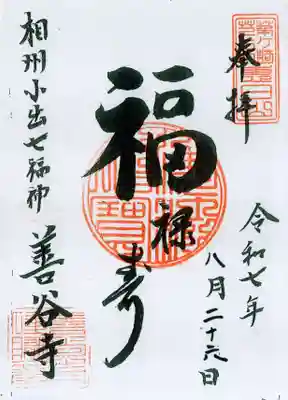 奉拝
令和七年
八月二十六日
福禄寿
相州小出七福神
善谷寺